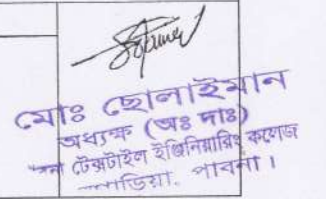 মোঃ ছোলাইমান
অধ্যক্ষ (অঃ দাঃ)
টেক্সটাইল ইঞ্জিনিয়ারিং কলেজ
পাবনা।